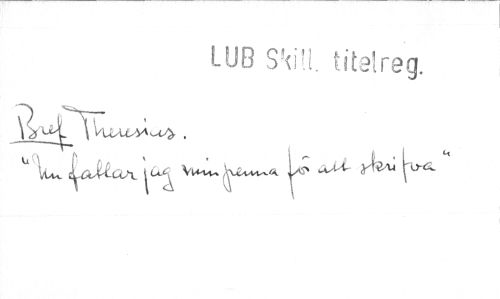 LUB Skill. titelreg.
Bref Theresius.
"Nu fattar jag min penna för att skrifva"